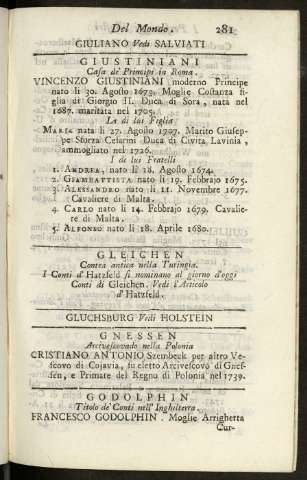 Del Mondo. 281
GIULIANO Vedi SALVIATI
GIUSTINIANI
Casa de' Principi in Roma.
VINCENZO GIUSTINIANI moderno Principe
nato li 30. Agosto 1673. Moglie Costanza fi-
glia di Giorgio II. Duca di Sora, nata nel
1687. maritata nel 1705.
La di lui Figlia
MARIA nata li 27. Agosto 1707. Marito Giusep-
pe Sforza Cesarini Duca di Civita Lavinia,
ammogliato nel 1726.
I di lui Fratelli
1. ANDREA, nato li 18. Agosto 1674.
2. GIAMBATTISTA nato li 19. Febbraio 1675.
3. ALESSANDRO nato li 11. Novembre 1677.
Cavaliere di Malta.
4. CARLO nato li 14. Febbraio 1679. Cavalie-
re di Malta.
5. ALFONSO nato li 18. Aprile 1680.
GLEICHEN
Contea antica nella Turingia.
I Conti d' Hatzfeld si nominano al giorno d'oggi
Conti di Gleichen. Vedi l'Articolo
d' Hatzfeld.
GLUCHSBURG Vedi HOLSTEIN
GNESSEN
Arcivescovado nella Polonia
CRISTIANO ANTONIO Szembeck per altro Ve-
scovo di Cujavia, fu eletto Arcivescovo di Gnes-
sen, e Primate del Regno di Polonia nel 1739.
GODOLPHIN
Titolo de' Conti nell' Inghilterra.
FRANCESCO GODOLPHIN. Moglie Arrighetta
Cur-